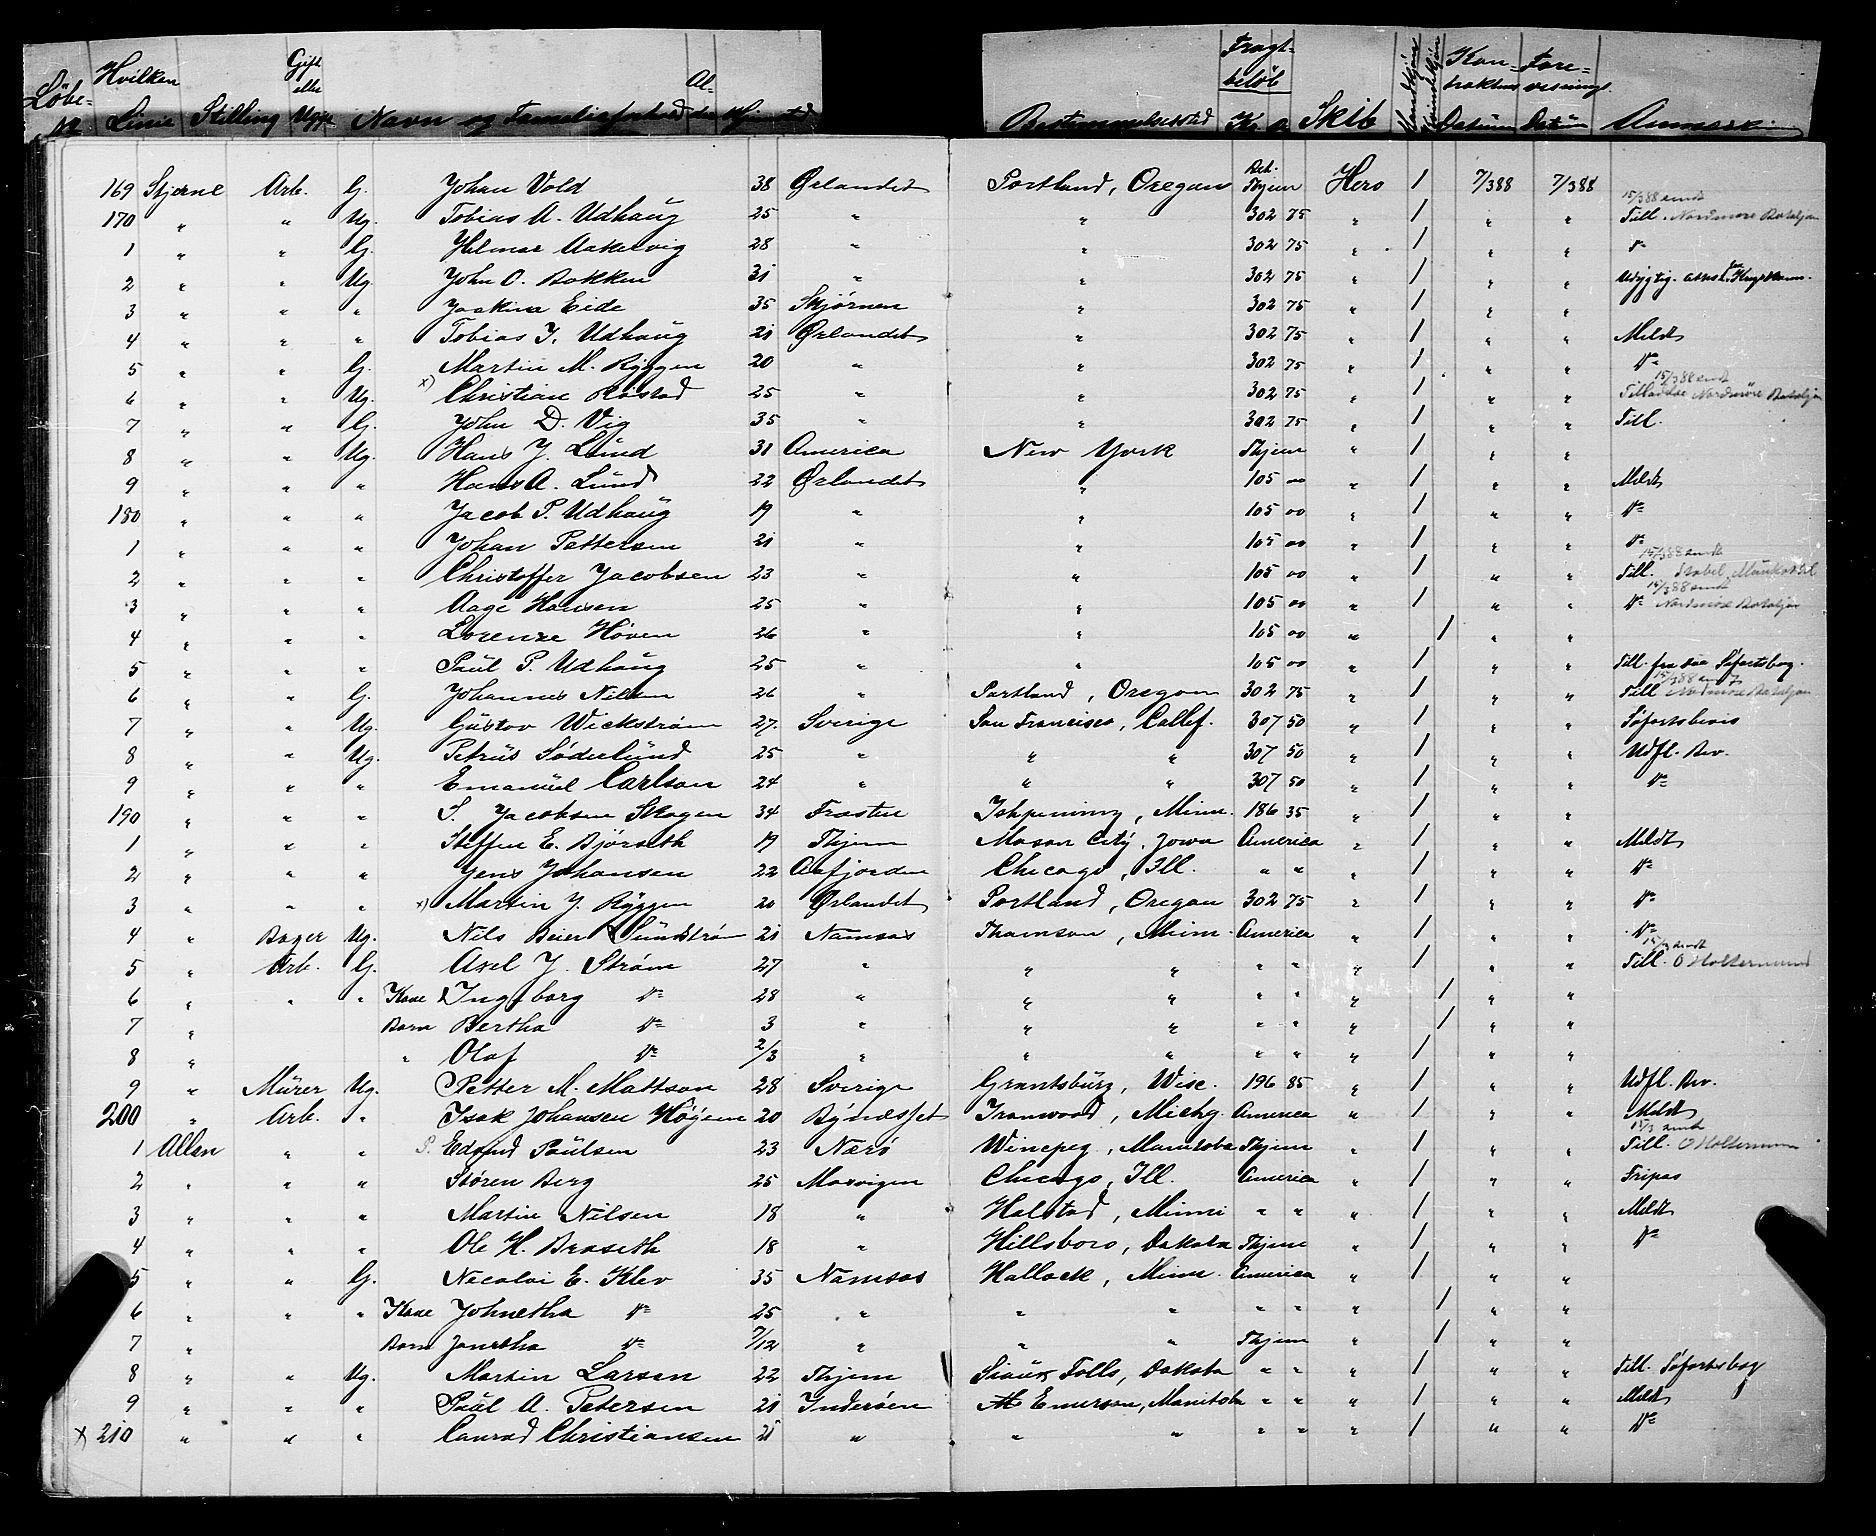 Løbe- No. Hvilken Linie Stilling Gift eller Ugift Navn og Familieforhold Al- der Hjemsted Bestemmelsessted Fragt- beløb Kr. Skib Mandkjøn Kvindekjøn Kon- trakten Datum Fore- visnings Datum Anmærk
169 Stjerne Arb. G. Johan Vold 38 Ørlandet Portland, Oregon Bet. Thjem Hero 1 7/388 7/388
170 " " Ug. Tobias A. Udhaug 25 " " 302 75 " 1 " " 15/388 sendt Till. Nordmøre Bataljon
1 " " G. Hilmar Aakervig 28 " " 302 75 " 1 " " Do
2 " " Ug. John O. Bakken 31 " " 302 75 " 1 " " Udygtig. attest
3 " " " Joakim Eide 35 Skjørnen " 302 75 " 1 " "
4 " " " Tobias J. Udhaug 21 Ørlandet " 302 75 " 1 " " Meldt
5 " " G. Martin M. Ryggen 20 " " 302 75 " 1 " " Do
6 " " Ug. x) Christian Røstad 25 " " 302 75 " 1 " " 15/388 sendt Tilladelse Nordmøre Bataljon
7 " " G. John D. Vig 35 " " 302 75 " 1 " " Till.
8 " " Ug. Hans J. Lund 31 America New York Thjem " 1 " "
9 " " " Hans A. Lund 22 Ørlandet " 105 00 " 1 " " Meldt
180 " " " Jacob P. Udhaug 19 " " 105 00 " 1 " " Do
1 " " " Johan Pettersen 21 " " 105 00 " 1 " " Do
2 " " " Christoffer Jacobsen 23 " " 105 00 " 1 " " 15/388 sendt Till.
3 " " " Aage Hansen 25 " " 105 00 " 1 " " 15/388 sendt Do Nordmøre Bataljon
4 " " " Lorenze Høven 26 " " 105 00 " 1 " "
5 " " " Paul P. Udhaug 25 " " 105 00 " 1 " " Till. fra Søfartsbog.
6 " " G. Johannes Nilsen 26 " Portland, Oregon 302 75 " 1 " " 15/388 sendt Till Nordmøre Bataljon
7 " " Ug. Gustav Wickstrøm 27. Sverige San Francisco, Callif. 307 50 " 1 " " Søfartsbevis
8 " " Ug. Petrus Söderlund 25 " " " 307 50 " 1 " " Udfl. Bev.
9 " " " Emanuel Carlson 24 " " " 307 50 " 1 " " Do
190 " " " S. Jacobsen Skogen 34 Frosten Ishpeming, Minn. 186 35 " 1 " "
1 " " " Steffen E. Bjørseth 19 Thjem Mason City, Jowa America " 1 " " Meldt
2 " " " Jens Johansen 22 Aafjorden Chicago, Ill. " " " 1 " " Do
3 " " " x) Martin J. Ryggen 20 Ørlandet Portland, Oregon 302 75 " 1 " " Do
4 " Bager Ug. Nils Beier Sundstrøm 21 Namsos Thomson, Minn. America " 1 " " Do
5 " Arb. G. Axel J. Strøm 27 " " " " " " 1 " " 15/3 sendt Till. O Holtermand
6 " " " Kone Ingeborg Do 28 " " " " " " 1 " "
7 " Barn Bertha Do 3 " " " " " " 1 " "
8 " " Olaf Do 2/3 " " " " " " 1 " "
9 " Murer Ug. Petter M. Mattson 28 Sverige Grantsburg, Wisc. 196 85 " 1 " " Udfl. Bev.
200 " Arb. " Isak Johansen Høyem 20 Bynæsset Ironwood, Michg. America " 1 " " Meldt
1 Allan " " Edvind Paulsen 23 Nærø Winepeg, Manitoba Thjem " 1 " " 15/3 sendt Till. O Holtermann
2 " " " Støren Berg 25 Mosvigen Chicago, Ill. America " 1 " " Fripas
3 " " " Martin Nilsen 18 " Halstad, Minni " " " 1 " " Meldt
4 " " " Ole H. Braseth 18 " Hillsboro, Dakota Thjem " 1 " " Do
5 " " G. Necolai E. Klev 35 Namsos Hallock, Minn. America " 1 " "
6 " " " Kone Johnetha Do 25 " " " " " " 1 " "
7 " Barn Janetha Do 7/12 " " " Thjem " 1 " "
8 " " Ug. Martin Larsen 22 Thjem Sioux Falls, Dakota " " " 1 " " Till. Søfartsbog
9 " " " Paul A. Petersen 21 Inderøen Emerson, Manitoba " " " 1 " " Meldt
x 210 " " " Conrad Christiansen 21 " " " " " " 1 " " Do